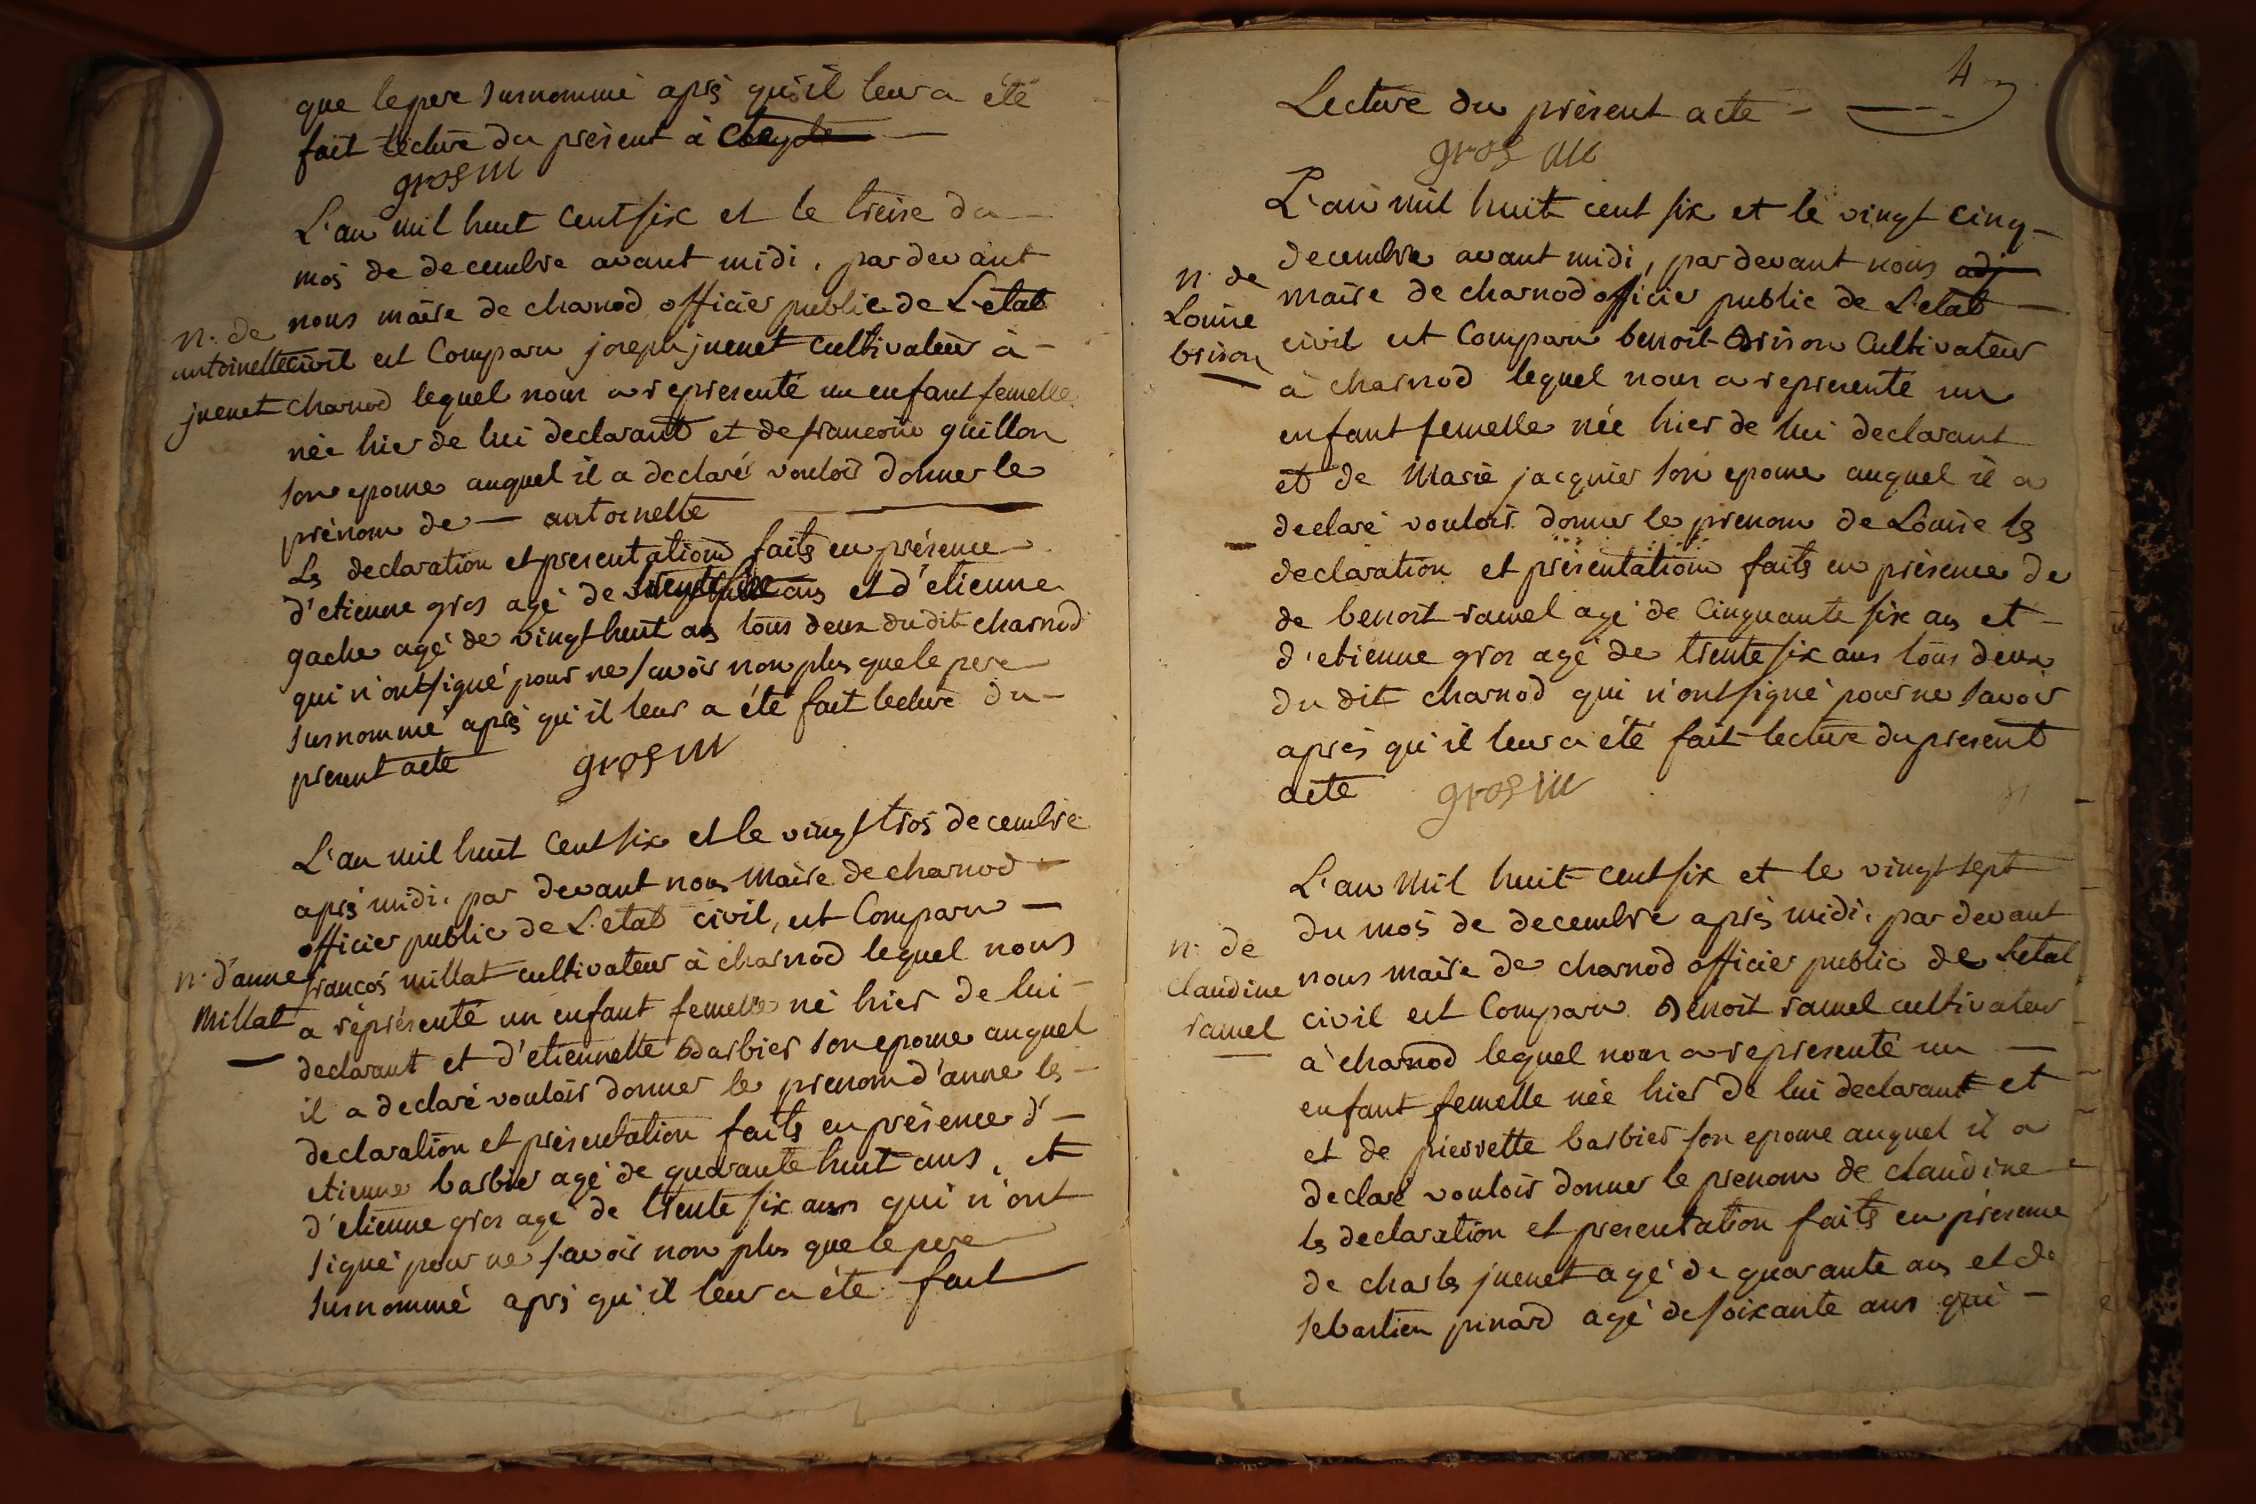 que le pere surnommé aprés qu'il leur a été
fait lecture du présent à
gros m
L'an mil huit cent six et le treise du
mois de decembre avant midi, par devant
nous maire de charnod officier public de L'etat
n. de
antoinette
juenet
civil est Comparu joseph juenet cultivateur à
charnod lequel nous a représenté un enfant femelle
née hier de lui declarant et de francoise guillon
son epouse auquel il a declaré vouloir donner le
prénom de - antoinette
Ls declaration et presentation faits en présence
d'etienne gros agé de ans et d'etienne
gache agé de vingt huit ans tous deux du dit charnod
qui n'ont signé pour ne savoir non plus que le pere
surnommé aprés qu'il leur a été fait lecture du
present acte gros m
L'an mil huit cent six et le vingt trois decembre
aprés midi, par devant nous Maire de charnod
officier public de L'etat civil, est Comparu
n. d'anne
Millat
francois millat cultivateur à charnod lequel nous
a réprésenté un enfant femelle né hier de lui
declarant et d'etiennette Barbier son epouse auquel
il a declaré vouloir donner le prenom d'anne ls
declaration et présentation faits en présence d'
etienne barbier agé de quarante huit ans, et
d'etienne gros agé de trente six ans qui n'ont
signé pour ne savoir non plus que le pere
surnommé aprés qu'il leur a été fait
4
Lecture du présent acte
gros m
L'an mil huit cent six et le vingt cinq
decembre avant midi, par devant nous adj
n. de
Louise
brison
maire de charnod officier public de L'etat
civil est Comparu benoit Brison Cultivateur
à charnod lequel nous a représenté un
enfant femelle née hier de lui declarant
et de Marie jacquier son epouse auquel il a
declaré vouloir donner le prenom de Louise ls
declaration et présentation faits en présence de
de benoit ramel agé de Cinquante six ans et
d'etienne gros agé de trente six ans tous deux
du dit charnod qui n'ont signé pour ne savoir
après qu'il leur a été fait lecture du present
acte gros m
L'an Mil huit cent six et le vingt sept
du mois de decembre aprés midi, par devant
n. de
Claudine
ramel
nous maire de charnod officier public de L'etat
civil est Comparu Benoit ramel cultivateur
à charnod lequel nous a représenté un
enfant femelle née hier de lui declarant et
et de pierrette barbier son epouse auquel il a
declaré vouloir donner le prenom de claudine
ls declaration et presentation faits en présence
de charls juenet agé de quarante ans et de
sebastien pinard agé de soixante ans qui